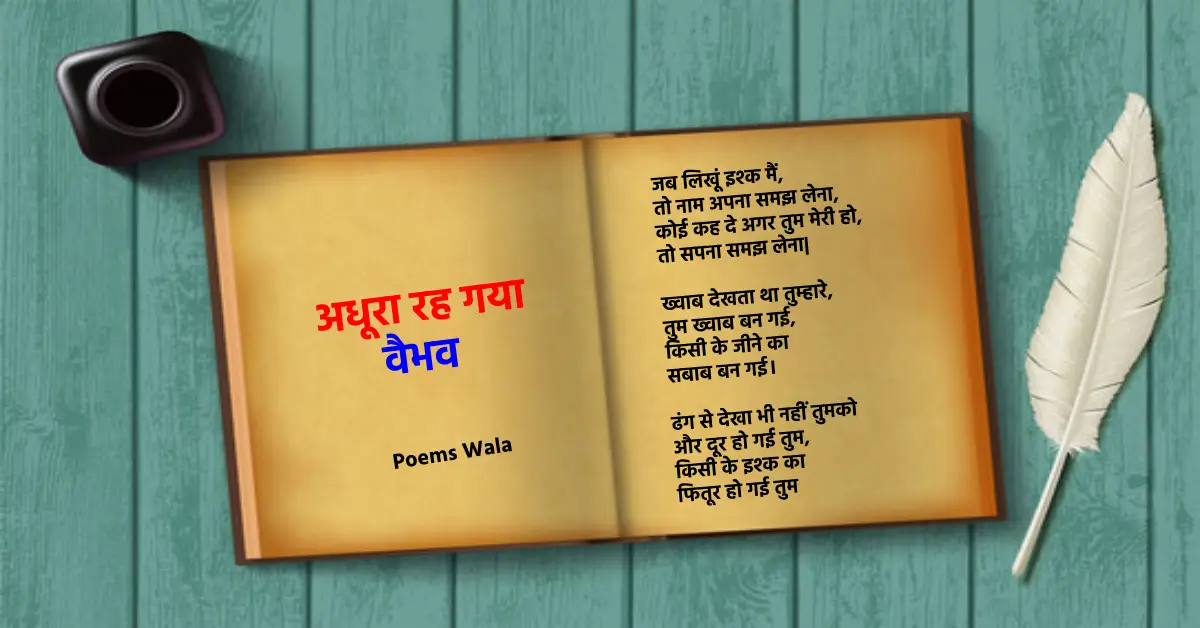 अधूरा रह गया
वैभव
Poems Wala
जब लिखूं इश्क मैं,
तो नाम अपना समझ लेना,
कोई कह दे अगर तुम मेरी हो,
तो सपना समझ लेना|
ख्वाब देखता था तुम्हारे,
तुम ख्वाब बन गई,
किसी के जीने का
सबाब बन गई।
ढंग से देखा भी नहीं तुमको
और दूर हो गई तुम,
किसी के इश्क का
फितूर हो गई तुम